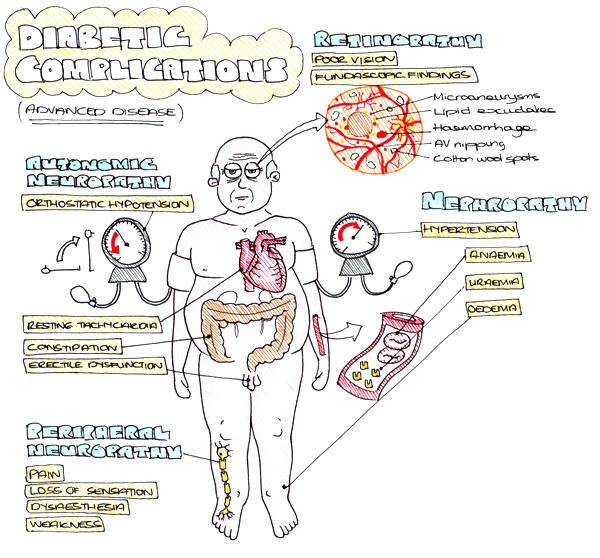 DIABETIC
COMPLICATIONS
(ADVANCED DISEASE)
RETINOPATHY
POOR VISION
FUNDASCOPIC FINDINGS
Microaneurysms
Lipid exudates
Haemorrhage
AV nipping
Cotton wool spots
AUTONOMIC
NEUROPATHY
ORTHOSTATIC HYPOTENSION
RESTING TACHYCARDIA
CONSTIPATION
ERECTILE DYSFUNCTION
NEPHROPATHY
HYPERTENSION
ANAEMIA
URAEMIA
OEDEMA
PERIPHERAL
NEUROPATHY
PAIN
LOSS OF SENSATION
DYSAESTHESIA
WEAKNESS